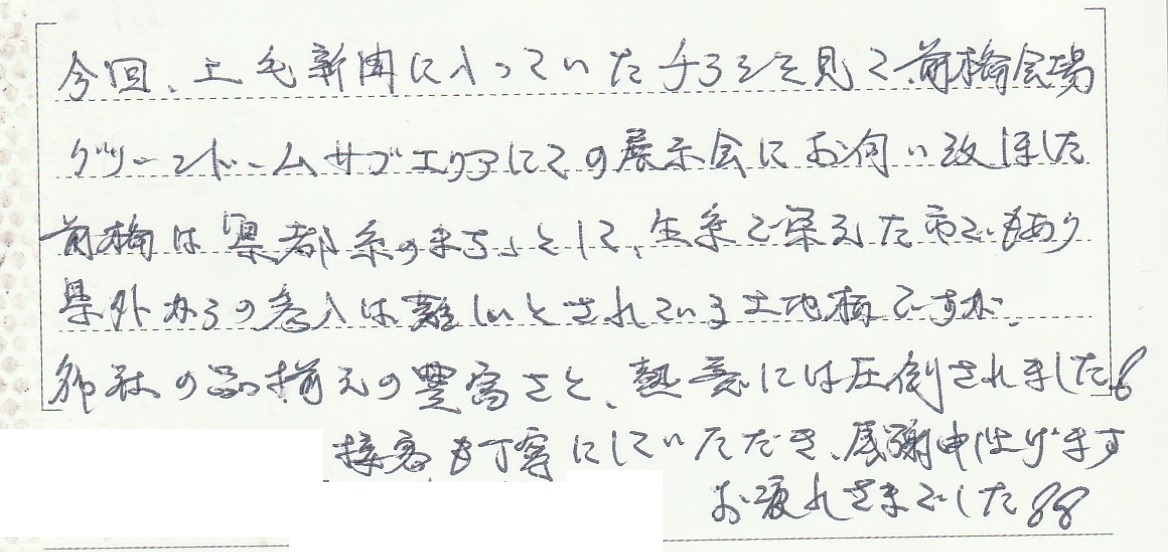 今回、上毛新聞に入っていたチラシを見て、前橋会場
グリーンドームサブエリアにての展示会にお伺い致しました
前橋は「県都糸のまち」として、生糸で栄えた市でもあり
県外からの参入は難しいとされている土地柄ですが、
御社の品揃えの豊富さと、熱意には圧倒されました。
接客も丁寧にしていただき、感謝申し上げます
お疲れさまでした。